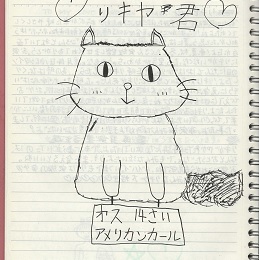 リキヤ君
オス 14さい
アメリカンカール